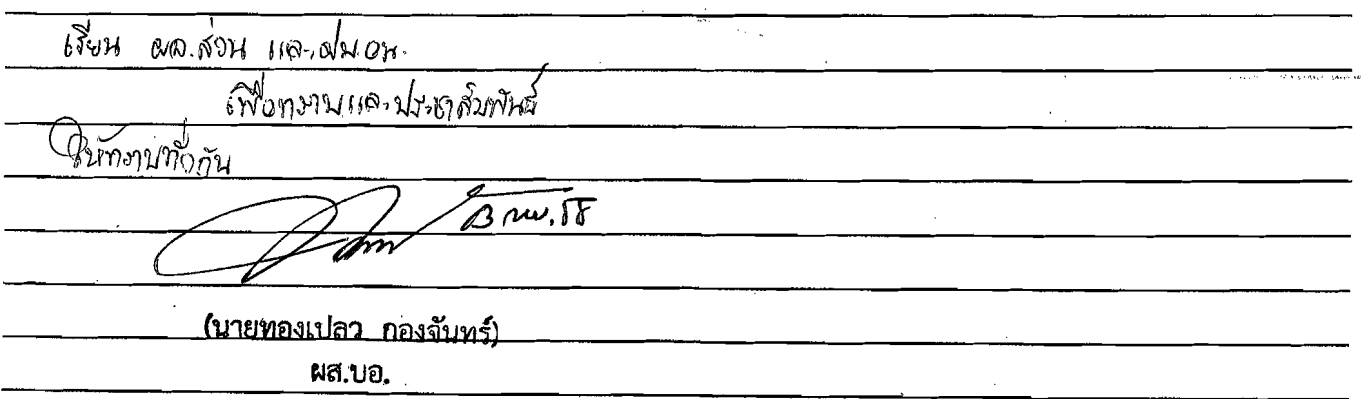 เรียน ผอ.ส่วน และ ฝ่าย.อน.
เพื่อทราบและประชาสัมพันธ์
ให้ทราบทั่วกัน
ก.พ. 58
(นายทองเปลว กองจันทร์)
ผส.บอ.